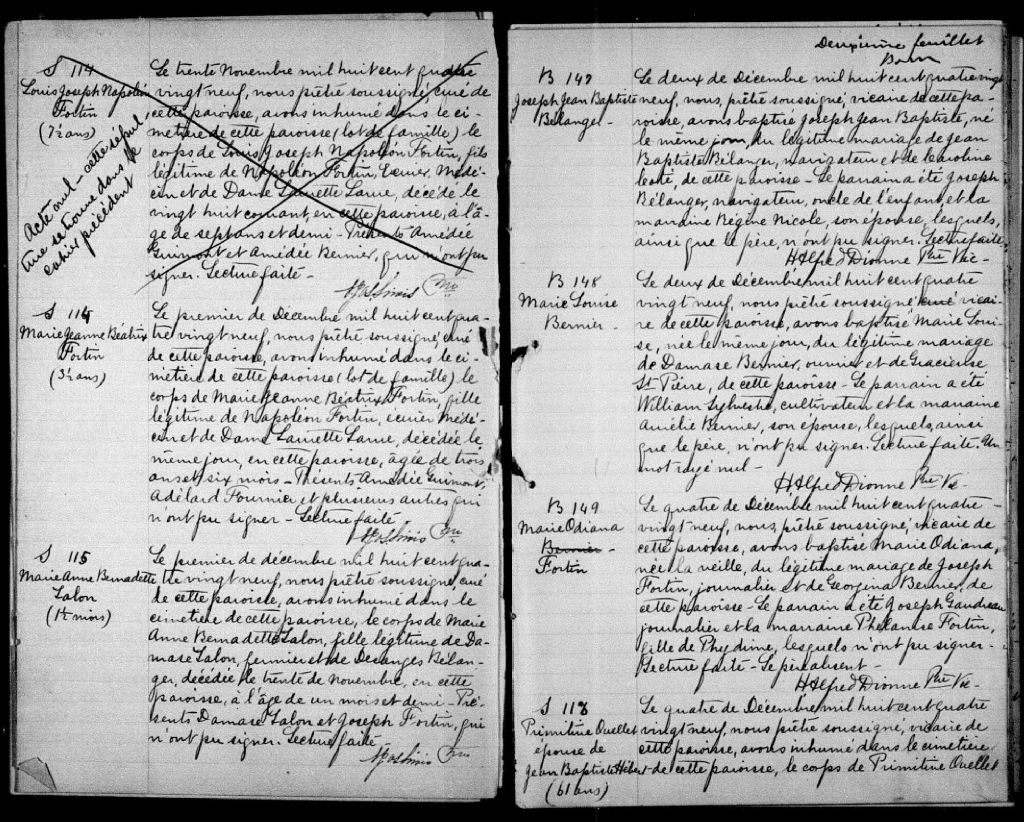 S 114
Louis Joseph Napoléon
Fortin
(7½ ans)
Acte nul - cette sépul
ture se trouve dans le
cahier précédent
Le trente Novembre mil huit cent quatre
vingt neuf, nous prêtre soussigné, curé de
cette paroisse, avons inhumé dans le ci-
metière de cette paroisse (lot de famille) le
corps de Louis Joseph Napoléon Fortin, fils
légitime de Napoléon Fortin, Ecuier, Méde-
cin et de Dame Laurette Larue, décédé le
vingt huit courant, en cette paroisse, à l'â-
ge de sept ans et demi - Présents Amédée
Guimont et Amédée Bernier, qui n'ont pu
signer. Lecture faite -
S 114
Marie Jeanne Béatrix
Fortin
(3½ ans)
Le premier de Décembre mil huit cent qua-
tre vingt neuf, nous prêtre soussigné, curé
de cette paroisse, avons inhumé dans le ci-
metière de cette paroisse (lot de famille) le
corps de Marie Jeanne Béatrix Fortin, fille
légitime de Napoléon Fortin, écuier Méde-
cin et de Dame Laurette Larue, décédée le
même jour, en cette paroisse, âgée de trois
ans et six mois - Présents Amédée Guimont,
Adélard Fournier et plusieurs autres qui
n'ont pu signer - Lecture faite
S 115
Marie Anne Bernadette
Lalon
(1½ mois)
Le premier de décembre mil huit cent qua-
tre vingt neuf, nous prêtre soussigné, curé
de cette paroisse, avons inhumé dans le
cimetière de cette paroisse, le corps de Marie
Anne Bernadette Lalon, fille légitime de Da-
mase Lalon, fermier et de Desanges Bélan-
ger, décédée le trente de Novembre, en cette
paroisse, à l'âge de un mois et demi - Pré-
sents Damase Lalon et Joseph Fortin, qui
n'ont pu signer. Lecture faite
Deuxième feuillet
B 147
Joseph Jean Baptiste
Bélanger -
Le deux de Décembre mil huit cent quatre vingt
neuf, nous, prêtre soussigné, vicaire de cette pa-
roisse, avons baptisé Joseph Jean Baptiste, né
le même jour, du légitime mariage de Jean
Baptiste Bélanger, navigateur et de Caroline
Coté, de cette paroisse - Le parrain a été Joseph
Bélanger, navigateur, oncle de l'enfant, et la
marraine Régine Nicole, son épouse, lesquels,
ainsi que le père, n'ont pu signer. Lecture faite
H Alfred Dionne Ptre Vic -
B 148
Marie Louise
Bernier -
Le deux de Décembre mil huit cent quatre
vingt neuf, nous prêtre soussigné curé vicai-
re de cette paroisse, avons baptisé Marie Loui-
se, née le même jour, du légitime mariage
de Damase Bernier, ouvrier et de Gracieuse
St. Pierre, de cette paroisse - Le parrain a été
William Sylvestre, cultivateur et la marraine
Aurélie Bernier, son épouse, lesquels, ainsi
que le père, n'ont pu signer. Lecture faite. Un
mot rayé nul -
H Alfred Dionne Ptre Vic -
B 149
Marie Odiana
Bernier
Fortin
Le quatre de Décembre mil huit cent quatre -
vingt neuf, nous, prêtre soussigné, vicaire de
cette paroisse, avons baptisé Marie Odiana,
née la veille, du légitime mariage de Joseph
Fortin, journalier et de Georgina Bernier, de
cette paroisse - Le parrain a été Joseph Gaudreau
journalier et la marraine Phélanise Fortin,
fille de Phydime, lesquels n'ont pu signer -
Lecture faite - Le père absent -
H Alfred Dionne Ptre Vic -
S 118
Primitive Ouellet
épouse de
Jean Baptiste Hébert
(61 ans)
Le quatre de Décembre mil huit cent quatre
vingt neuf, nous prêtre soussigné, vicaire de
cette paroisse, avons inhumé dans le cimetière
de cette paroisse, le corps de Primitive Ouellet